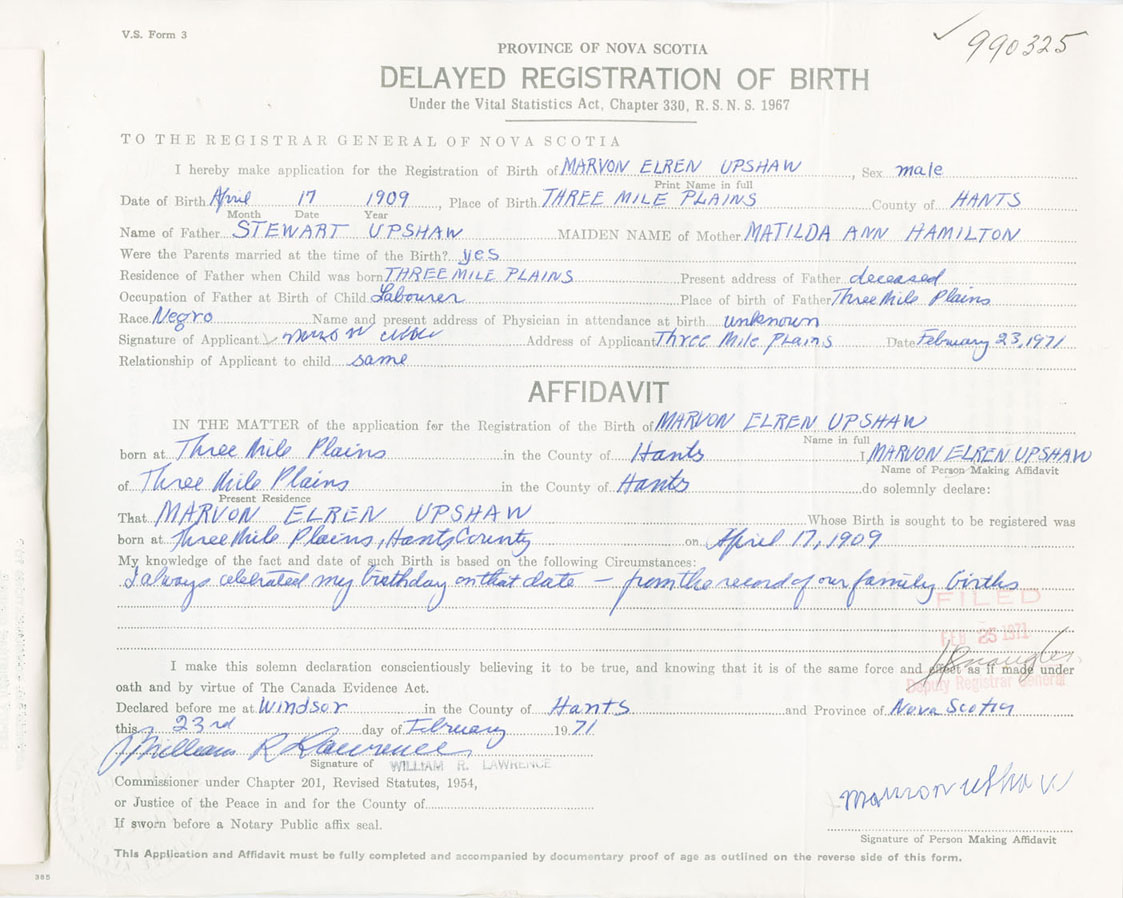 V.S. Form 3
990325
PROVINCE OF NOVA SCOTIA
DELAYED REGISTRATION OF BIRTH
Under the Vital Statistics Act, Chapter 330, R.S.N.S. 1967
TO THE REGISTRAR GENERAL OF NOVA SCOTIA
I hereby make application for the Registration of Birth of MARVON ELREN UPSHAW, Sex male
Print Name in full
Date of Birth April 17 1909, Place of Birth THREE MILE PLAINS County of HANTS
Month Date Year
Name of Father STEWART UPSHAW MAIDEN NAME of Mother MATILDA ANN HAMILTON
Were the Parents married at the time of the Birth? yes
Residence of Father when Child was born THREE MILE PLAINS Present address of Father deceased
Occupation of Father at Birth of Child Labourer Place of birth of Father Three Mile Plains
Race Negro Name and present address of Physician in attendance at birth unknown
Signature of Applicant Address of Applicant Three Mile Plains Date February 23, 1971
Relationship of Applicant to child same
AFFIDAVIT
IN THE MATTER of the application for the Registration of the Birth of MARVON ELREN UPSHAW
Name in full
born at Three Mile Plains in the County of Hants I, MARVON ELREN UPSHAW
Name of Person Making Affidavit
of Three Mile Plains in the County of Hants do solemnly declare:
Present Residence
That MARVON ELREN UPSHAW Whose Birth is sought to be registered was
born at Three Mile Plains, Hants County on April 17, 1909
My knowledge of the fact and date of such Birth is based on the following Circumstances:
I always celebrated my birthday on that date - from the record of our family births
FILED
FEB 25 1971
I make this solemn declaration conscientiously believing it to be true, and knowing that it is of the same force and effect as if made under
Deputy Registrar General
oath and by virtue of The Canada Evidence Act.
Declared before me at Windsor in the County of Hants and Province of Nova Scotia
this 23rd day of February 1971
William R Lawrence
Signature of WILLIAM R. LAWRENCE
Commissioner under Chapter 201, Revised Statutes, 1954,
or Justice of the Peace in and for the County of
If sworn before a Notary Public affix seal.
Marvon Upshaw
Signature of Person Making Affidavit
This Application and Affidavit must be fully completed and accompanied by documentary proof of age as outlined on the reverse side of this form.
385